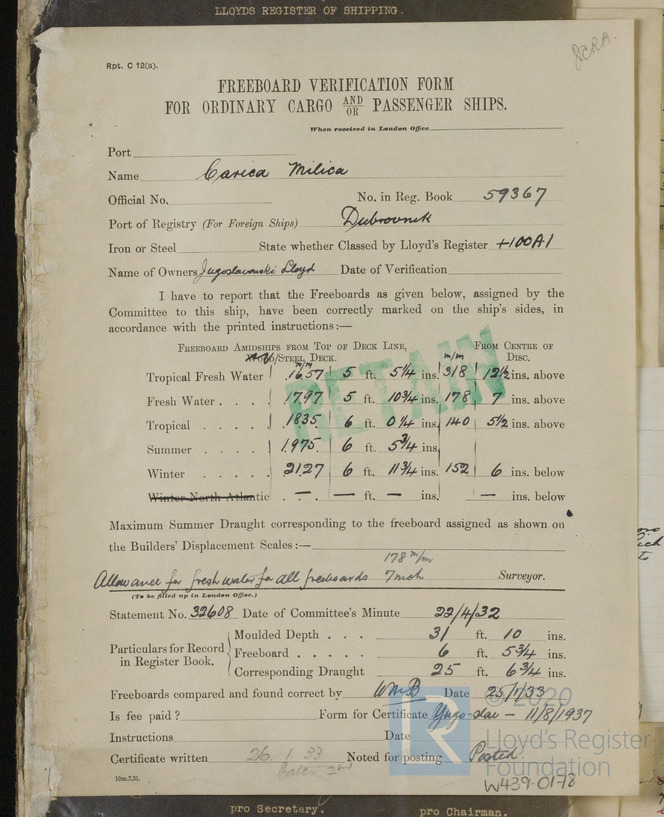 LLOYDS REGISTER OF SHIPPING.
Rpt. C 12(a).
FREEBOARD VERIFICATION FORM
FOR ORDINARY CARGO AND OR PASSENGER SHIPS.
When received in London Office
Port
Name Carica Milica
Official No. No. in Reg. Book 59367
Port of Registry (For Foreign Ships) Dubrovnik
Iron or Steel State whether Classed by Lloyd's Register +100A1
Name of Owners Jugoslavenski Lloyd Date of Verification
I have to report that the Freeboards as given below, assigned by the
Committee to this ship, have been correctly marked on the ship's sides, in
accordance with the printed instructions:—
Freeboard Amidships from Top of Deck Line, From Centre of
/Steel Deck. m/m Disc.
m/m
Tropical Fresh Water 1657 5 ft. 5 1/4 ins. 318 12 1/2 ins. above
Fresh Water . . . . 1797 5 ft. 10 3/4 ins. 178 7 ins. above
Tropical . . . . 1835 6 ft. 0 1/4 ins. 140 5 1/2 ins. above
Summer . . . . 1975 6 ft. 5 3/4 ins.
Winter . . . . 2127 6 ft. 11 3/4 ins. 152 6 ins. below
Winter North Atlantic . . — — ft. — ins. — ins. below
RETAIN
Maximum Summer Draught corresponding to the freeboard assigned as shown on
the Builders' Displacement Scales:—
178 m/m
Allowance for fresh water for all freeboards 7 inch Surveyor.
(To be filled up in London Office.)
Statement No. 32608 Date of Committee's Minute 22/4/32
Particulars for Record in Register Book.
Moulded Depth . . . 31 ft. 10 ins.
Freeboard . . . . . 6 ft. 5 3/4 ins.
Corresponding Draught 25 ft. 6 3/4 ins.
Freeboards compared and found correct by WMB Date 25/1/33
Is fee paid? Form for Certificate Yugo-slav — 11/8/1937
Instructions Date
Certificate written 26.1.33 Noted for posting Posted
10m,7,31.
© 2020
Lloyd's Register
Foundation
W439-0178
pro Secretary. pro Chairman.